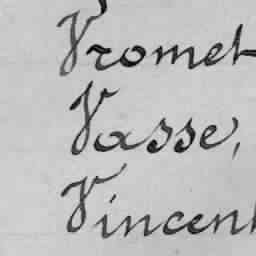 Vromet
Vasse,
Vincent